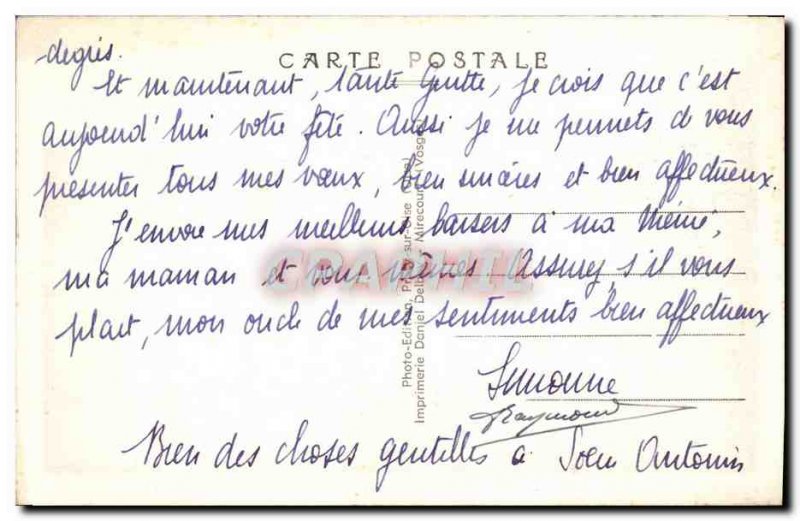 degrés.
CARTE POSTALE
Et maintenant, tante Gentte, je crois que c'est
aujourd'hui votre fête. Aussi je me permets de vous
présenter tous mes vœux, bien sincères et bien affectueux.
J'envoie mes meilleurs baisers à ma Mémé,
ma maman et vous mêmes. Assurez, s'il vous
plait, mon oncle de mes sentiments bien affectueux
Simonne
Raymond
Bien des choses gentilles à Antonin
Photo-Edition, sur-Oise
Imprimerie Daniel Mirecourt Vosges
CPAPHIL